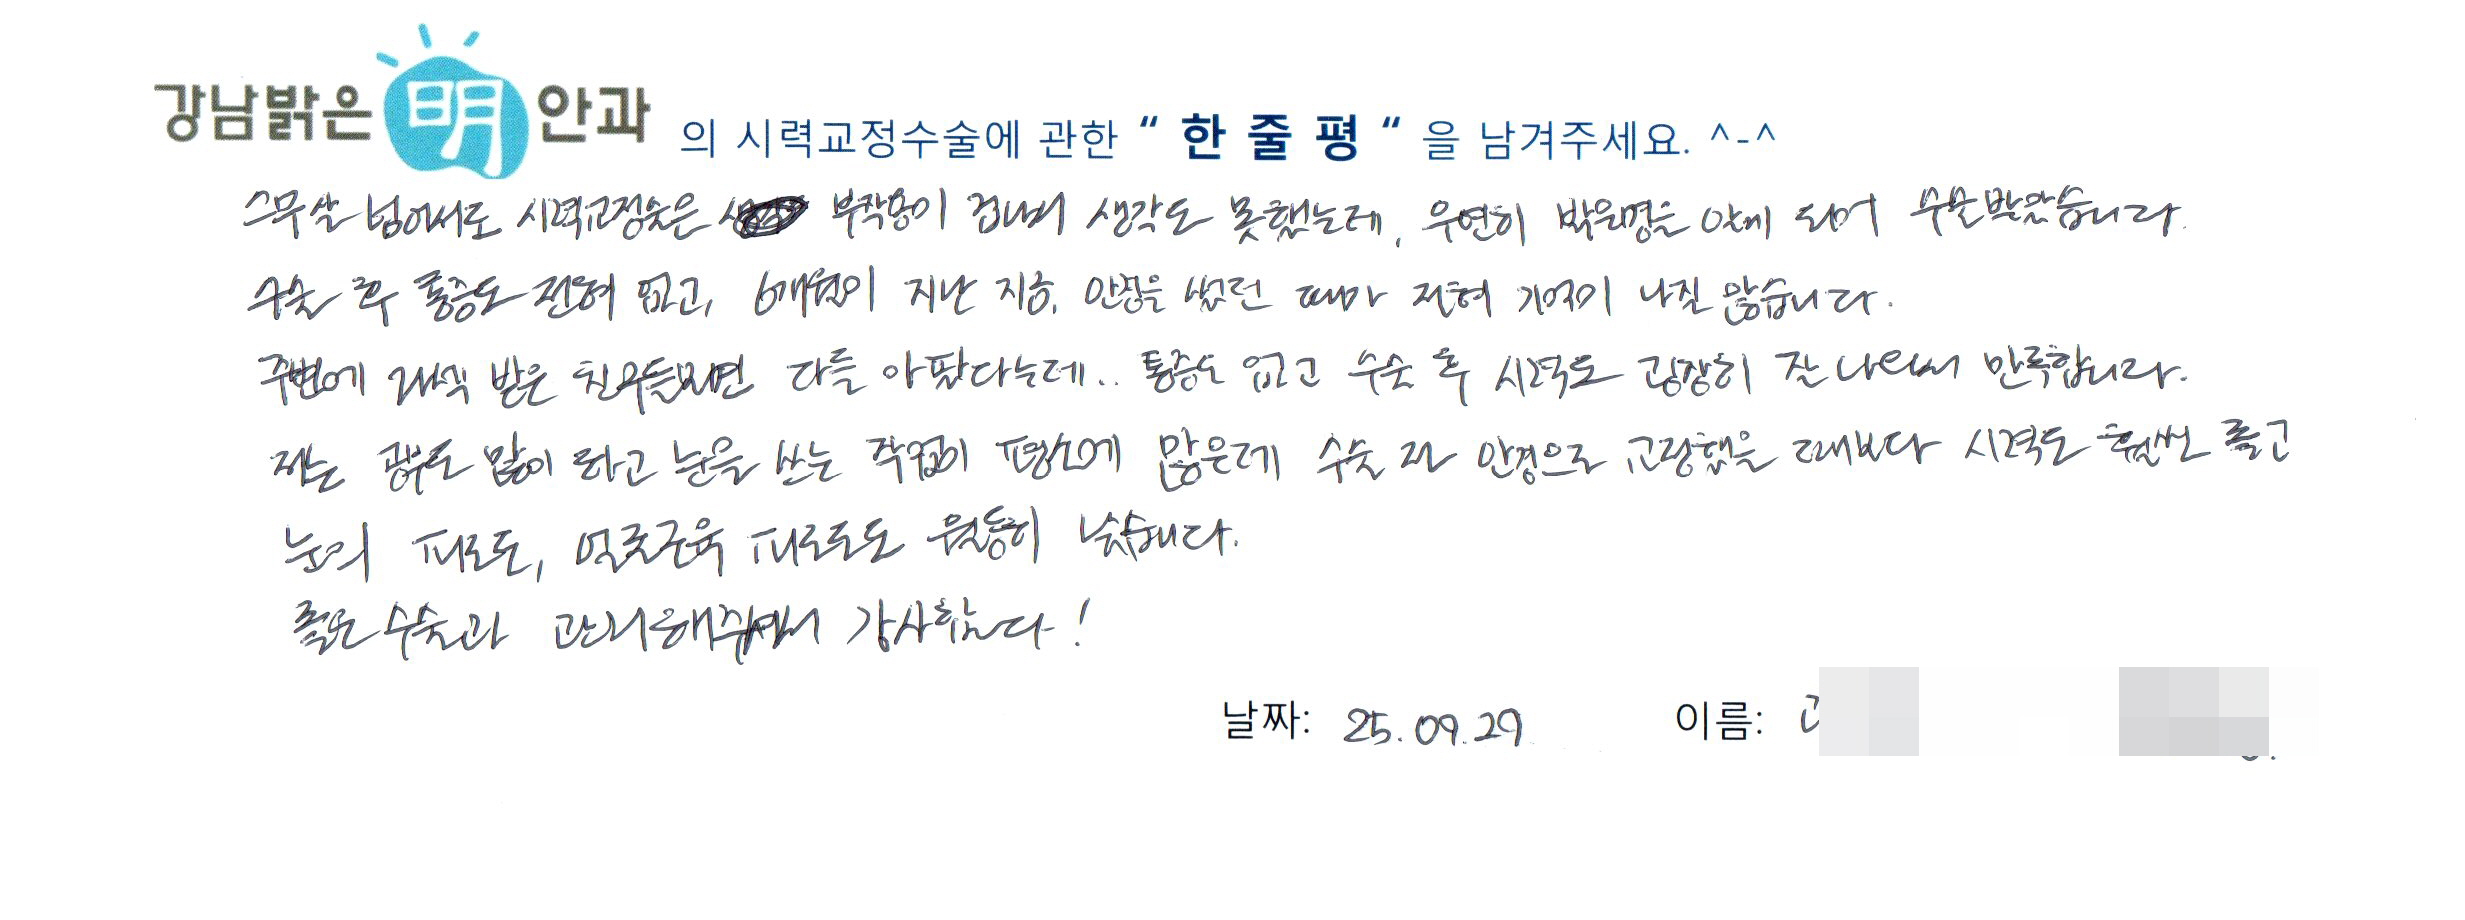 강남밝은明안과 의 시력교정수술에 관한 “ 한 줄 평 “ 을 남겨주세요. ^-^
스무살 넘어서도 시력교정술은 부작용이 겁나서 생각도 못했는데, 우연히 밝은명을 알게 되어 수술받았습니다.
수술 후 통증도 전혀 없고, 6개월이 지난 지금, 안경을 썼던 때가 전혀 기억이 나질 않습니다.
주변에 라식 받은 친구들보면 다들 아팠다는데.. 통증도 없고 수술 후 시력도 굉장히 잘 나와서 만족합니다.
저는 공부도 많이 하고 눈을 쓰는 작업이 평소에 많은데 수술 전 안경으로 교정했을 때보다 시력도 훨씬 좋고
눈의 피로도, 얼굴근육 피로도도 월등히 낮습니다.
좋은 수술과 관리해주셔서 감사합니다!
날짜: 25.09.29 이름: